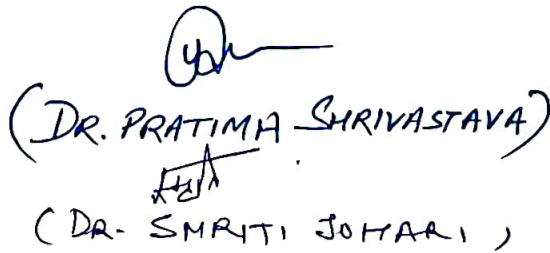 (DR. PRATIMA SHRIVASTAVA)
(DR. SMRITI JOHARI)